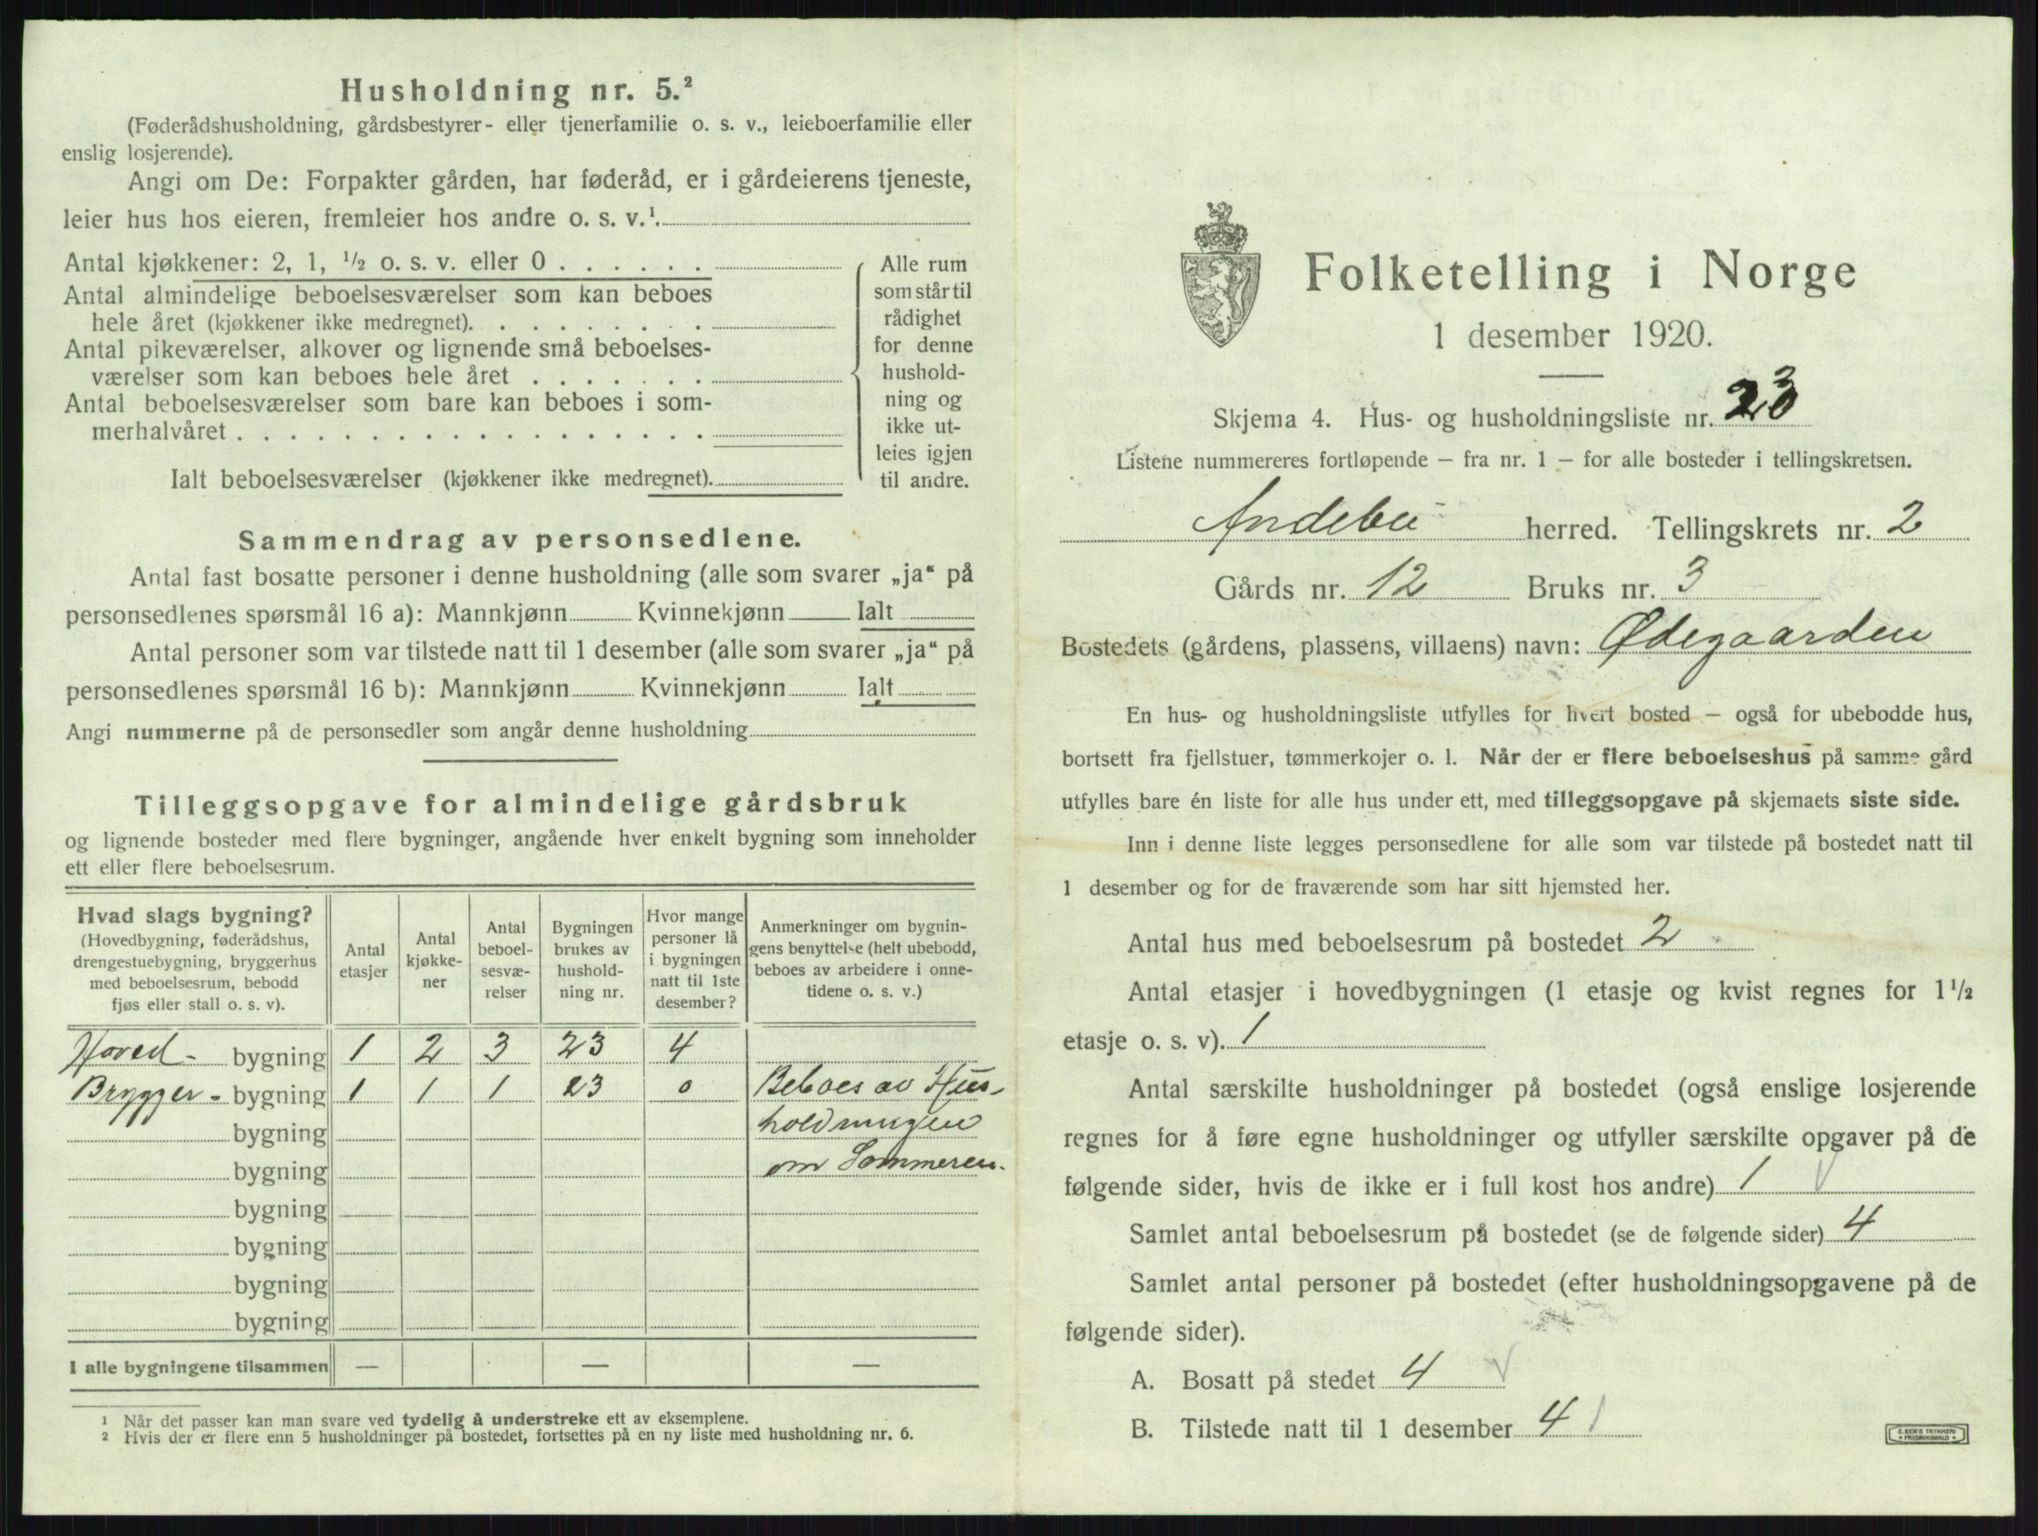 Husholdning nr. 5.²
(Føderådshusholdning, gårdsbestyrer- eller tjenerfamilie o. s. v., leieboerfamilie eller
enslig losjerende).
Angi om De: Forpakter gården, har føderåd, er i gårdeierens tjeneste,
leier hus hos eieren, fremleier hos andre o. s. v.¹
Antal kjøkkener: 2, 1, ½ o. s. v. eller 0 . . . . . .
Antal almindelige beboelsesværelser som kan beboes
hele året (kjøkkener ikke medregnet). . . . . . . . .
Antal pikeværelser, alkover og lignende små beboelses-
værelser som kan beboes hele året . . . . . . .
Antal beboelsesværelser som bare kan beboes i som-
merhalvåret . . . . . . . . . . . . . . . . . .
Ialt beboelsesværelser (kjøkkener ikke medregnet).
Alle rum
som står til
rådighet
for denne
hushold-
ning og
ikke ut-
leies igjen
til andre.
Sammendrag av personsedlene.
Antal fast bosatte personer i denne husholdning (alle som svarer „ja“ på
personsedlenes spørsmål 16 a): Mannkjønn Kvinnekjønn Ialt
Antal personer som var tilstede natt til 1 desember (alle som svarer „ja“ på
personsedlenes spørsmål 16 b): Mannkjønn Kvinnekjønn Ialt
Angi nummerne på de personsedler som angår denne husholdning
Tilleggsopgave for almindelige gårdsbruk
og lignende bosteder med flere bygninger, angående hver enkelt bygning som inneholder
ett eller flere beboelsesrum.
Hvad slags bygning?
(Hovedbygning, føderådshus,
drengestuebygning, bryggerhus
med beboelsesrum, bebodd
fjøs eller stall o. s. v).
Antal
etasjer
Antal
kjøkke-
ner
Antal
beboel-
sesvæ-
relser
Bygningen
brukes av
hushold-
ning nr.
Hvor mange
personer lå
i bygningen
natt til 1ste
desember?
Anmerkninger om bygnin-
gens benyttelse (helt ubebodd,
beboes av arbeidere i onne-
tidene o. s. v.)
Hoved- bygning 1 2 3 23 4
Brygger- bygning 1 1 1 23 0 Beboes av Hus-
bygning holdningen
bygning om Sommeren.
bygning
bygning
bygning
bygning
I alle bygningene tilsammen — — —
¹ Når det passer kan man svare ved tydelig å understreke ett av eksemplene.
² Hvis der er flere enn 5 husholdninger på bostedet, fortsettes på en ny liste med husholdning nr. 6.
Folketelling i Norge
1 desember 1920.
Skjema 4. Hus- og husholdningsliste nr. 23
Listene nummereres fortløpende – fra nr. 1 – for alle bosteder i tellingskretsen.
Andebu herred. Tellingskrets nr. 2
Gårds nr. 12 Bruks nr. 3
Bostedets (gårdens, plassens, villaens) navn: Ødegaarden
En hus- og husholdningsliste utfylles for hvert bosted – også for ubebodde hus,
bortsett fra fjellstuer, tømmerkojer o. l. Når der er flere beboelseshus på samme gård
utfylles bare én liste for alle hus under ett, med tilleggsopgave på skjemaets siste side.
Inn i denne liste legges personsedlene for alle som var tilstede på bostedet natt til
1 desember og for de fraværende som har sitt hjemsted her.
Antal hus med beboelsesrum på bostedet 2
Antal etasjer i hovedbygningen (1 etasje og kvist regnes for 1½
etasje o. s. v). 1
Antal særskilte husholdninger på bostedet (også enslige losjerende
regnes for å føre egne husholdninger og utfyller særskilte opgaver på de
følgende sider, hvis de ikke er i full kost hos andre) 1
Samlet antal beboelsesrum på bostedet (se de følgende sider) 4
Samlet antal personer på bostedet (efter husholdningsopgavene på de
følgende sider).
A. Bosatt på stedet 4
B. Tilstede natt til 1 desember 4
E. SEM'S TRYKKERI
FREDRIKSHALD